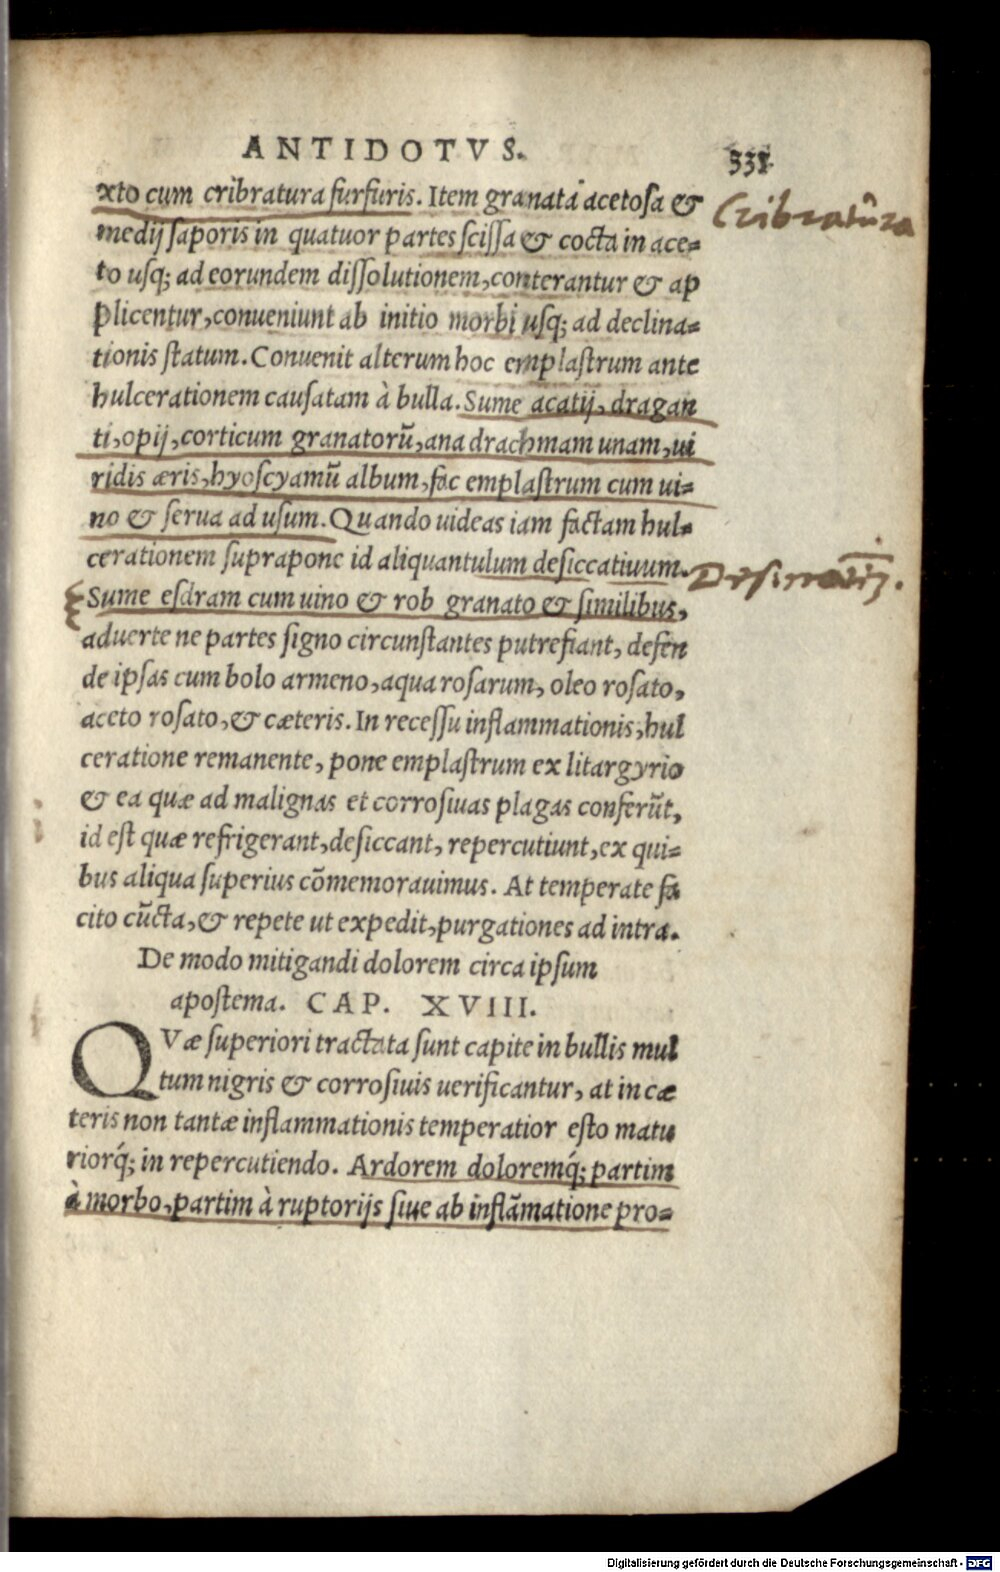 ANTIDOTVS. 331
xto cum cribratura furfuris. Item granata acetosa &
Cribratura
medij saporis in quatuor partes scissa & cocta in ace=
to usq; ad eorundem dissolutionem, conterantur & ap
plicentur, conueniunt ab initio morbi usq; ad declina=
tionis statum. Conuenit alterum hoc emplastrum ante
hulcerationem causatam à bulla. Sume acatij, dragan
ti, opij, corticum granatorũ, ana drachmam unam, ui
ridis æris, hyoscyamũ album, fac emplastrum cum ui=
no & serua ad usum. Quando uideas iam factam hul=
cerationem suprapone id aliquantulum desiccatiuum.
Sume esdram cum uino & rob granato & similibus,
aduerte ne partes signo circunstantes putrefiant, defen
de ipsas cum bolo armeno, aqua rosarum, oleo rosato,
aceto rosato, & cæteris. In recessu inflammationis, hul
ceratione remanente, pone emplastrum ex litargyrio
& ea quæ ad malignas et corrosiuas plagas conferũt,
id est quæ refrigerant, desiccant, repercutiunt, ex qui=
bus aliqua superius cõmemorauimus. At temperate fa
cito cũcta, & repete ut expedit, purgationes ad intra.
De modo mitigandi dolorem circa ipsum
apostema. CAP. XVIII.
QVæ superiori tractata sunt capite in bullis mul
tum nigris & corrosiuis uerificantur, at in cæ
teris non tantæ inflammationis temperatior esto matu
riorq́; in repercutiendo. Ardorem doloremq́; partim
à morbo, partim à ruptorijs siue ab inflãmatione pro=
Digitalisierung gefördert durch die Deutsche Forschungsgemeinschaft - DFG